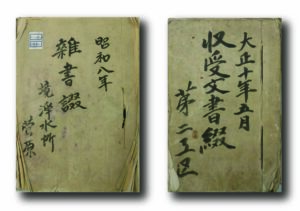 昭和八年
雑書綴
境浄水所
菅原
大正十年五月
収受文書綴
第二工区